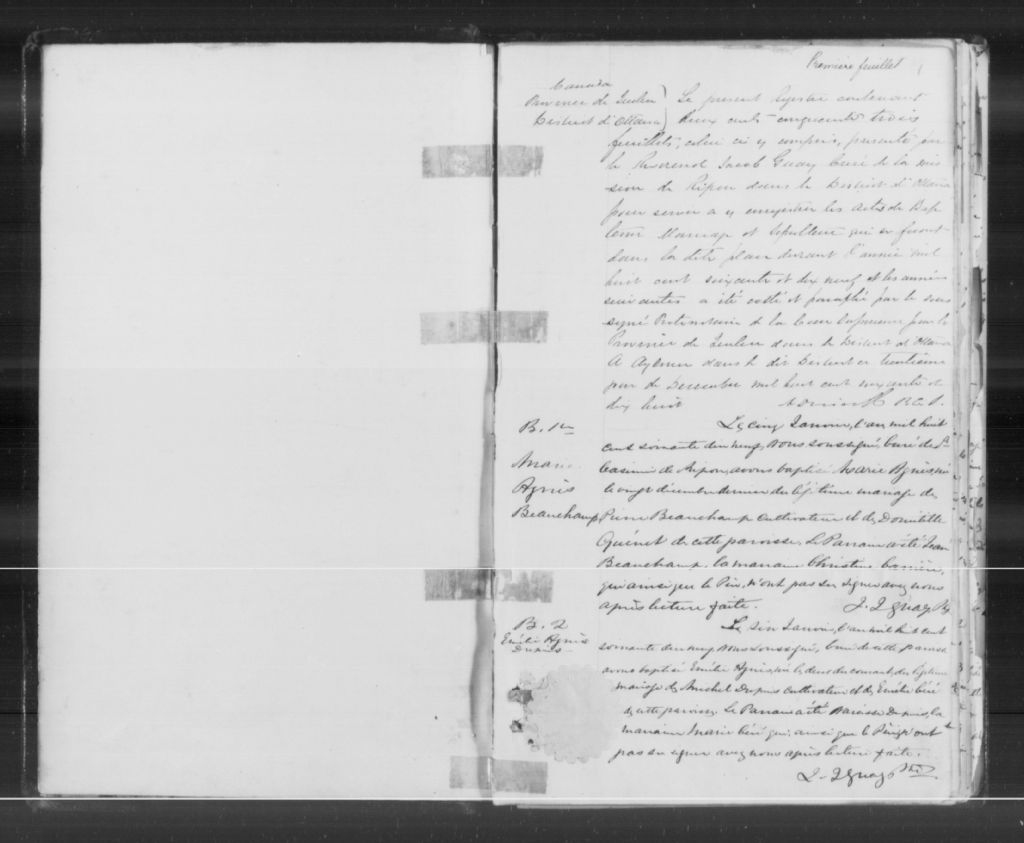 Première feuillet
Canada
Province de Quebec
District d'Ottawa
Le present Registre contenant
deux cents cinquante trois
feuillets, celui ci y compris, presenté par
le Reverend Jacob Guay, Curé de la mis
sion de Ripon dans le District d'Ottawa
pour servir a y enregistrer les actes de Bap
teme Mariage et Sepulture qui se feront
dans la dite place durant l'année mil
huit cent soixante et dix neuf et les années
suivantes a été coté et paraphé par le sous
signé Protonotaire de la Cour Superieure pour la
Province de Quebec dans le District d'Ottawa
A Aylmer dans le dit District ce trentieme
jour de Decembre mil huit cent soixante et
dix huit
B. 1re
Marie
Agnès
Beauchamp
Le cinq Janvier, l'an mil huit
cent soixante dix neuf, nous soussigné, curé de St
Casimir de Ripon, avons baptisé Marie Agnès, née
le vingt décembre dernier du légitime mariage de
Pierre Beauchamp cultivateur et de Domitilde
Guénet de cette paroisse. Le Parrain a été Jean
Beauchamp, la marraine Christine
qui ainsi que le Père, n'ont pas su signer avec nous
après lecture faite. J. I Guay Ptre
B. 2
Emélie Agnès
Dupuis
Le six Janvier, l'an mil huit cent
soixante dix neuf, nous soussigné, curé de cette paroisse
avons baptisé Emélie Agnès, née le deux du courant, du légitime
mariage de Michel Dupuis cultivateur et de Emélie
de cette paroisse. Le Parrain a été Narcisse Dupuis, la
marraine Marie qui, ainsi que le Père, n'ont
pas su signer avec nous après lecture faite.
J. I Guay Ptre